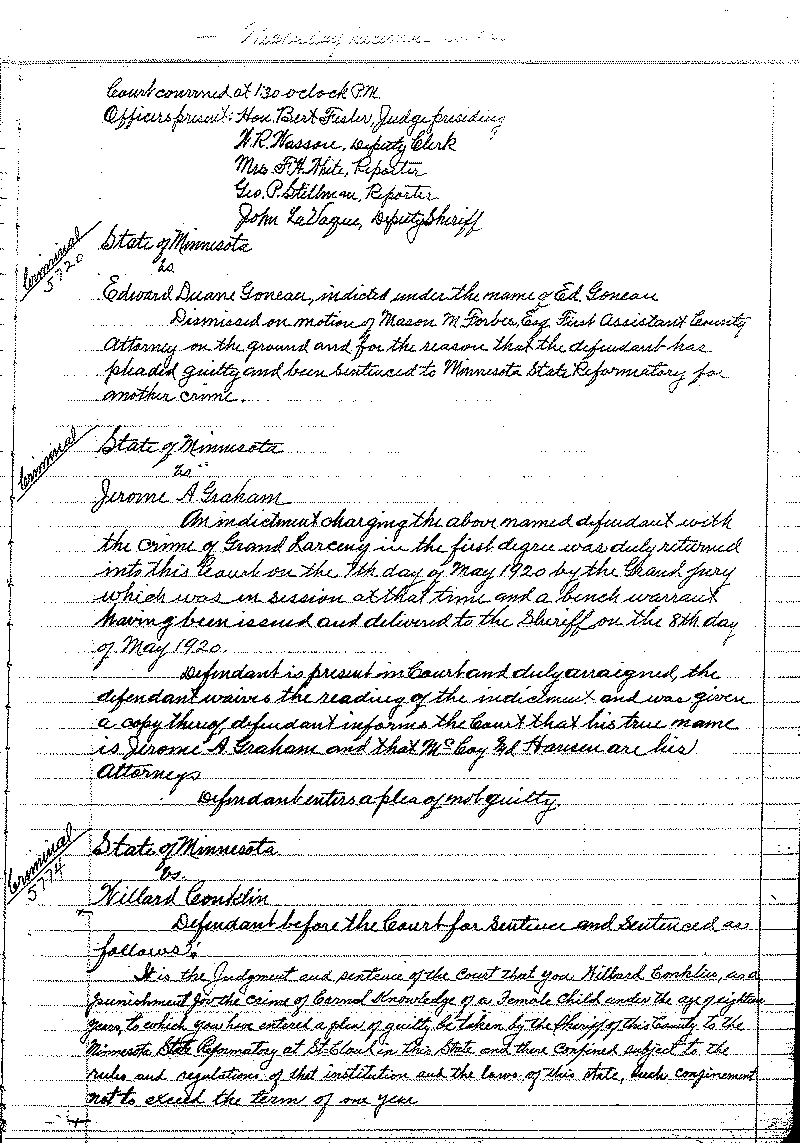 Court convened at 1:30 o'clock P.M.
Officers present: Hon. Bert Fesler, Judge presiding
W.R. Wasson, Deputy Clerk
Mrs. F.H. White, Reporter
Geo. P. Stillman, Reporter
John LaVaque, Deputy Sheriff
Criminal
5720
State of Minnesota
vs
Edward Duane Goneau, indicted under the name of Ed. Goneau
Dismissed on motion of Mason M Forbes, Esq First Assistant County
Attorney on the ground and for the reason that the defendant has
pleaded guilty and been sentenced to Minnesota State Reformatory for
another crime.
Criminal
State of Minnesota
vs
Jerome A Graham
An indictment charging the above named defendant with
the crime of Grand Larceny in the first degree was duly returned
into this Court on the 7th day of May 1920 by the Grand jury
which was in session at that time and a bench warrant
having been issued and delivered to the Sheriff on the 8th day
of May 1920.
Defendant is present in Court and duly arraigned, the
defendant waives the reading of the indictment and was given
a copy thereof defendant informs the Court that his true name
is Jerome A Graham and that McCoy Hansen are his
Attorneys
Defendant enters a plea of not guilty.
Criminal
5774
State of Minnesota
vs.
Willard Conklin
Defendant before the Court for Sentence and Sentenced as
follows:
It is the Judgment and sentence of the court that you Willard Conklin, as a
punishment for the crime of Carnal Knowledge of a Female Child under the age of eighteen
years, to which you have entered a plea of guilty, be taken by the Sheriff of this County to the
Minnesota State Reformatory at St. Cloud in this State and there confined subject to the
rules and regulations of that institution and the laws of this state, such confinement
not to exceed the term of one year